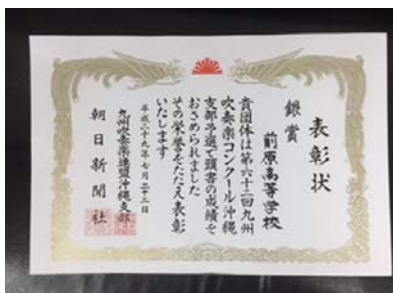 表彰状
銀賞
前原高等学校
貴団体は第六十二回九州
吹奏楽コンクール沖縄
支部予選で頭書の成績を
おさめられました
その栄誉をたたえ表彰
いたします
平成二十九年七月二十二日
九州吹奏楽連盟沖縄支部
朝日新聞社